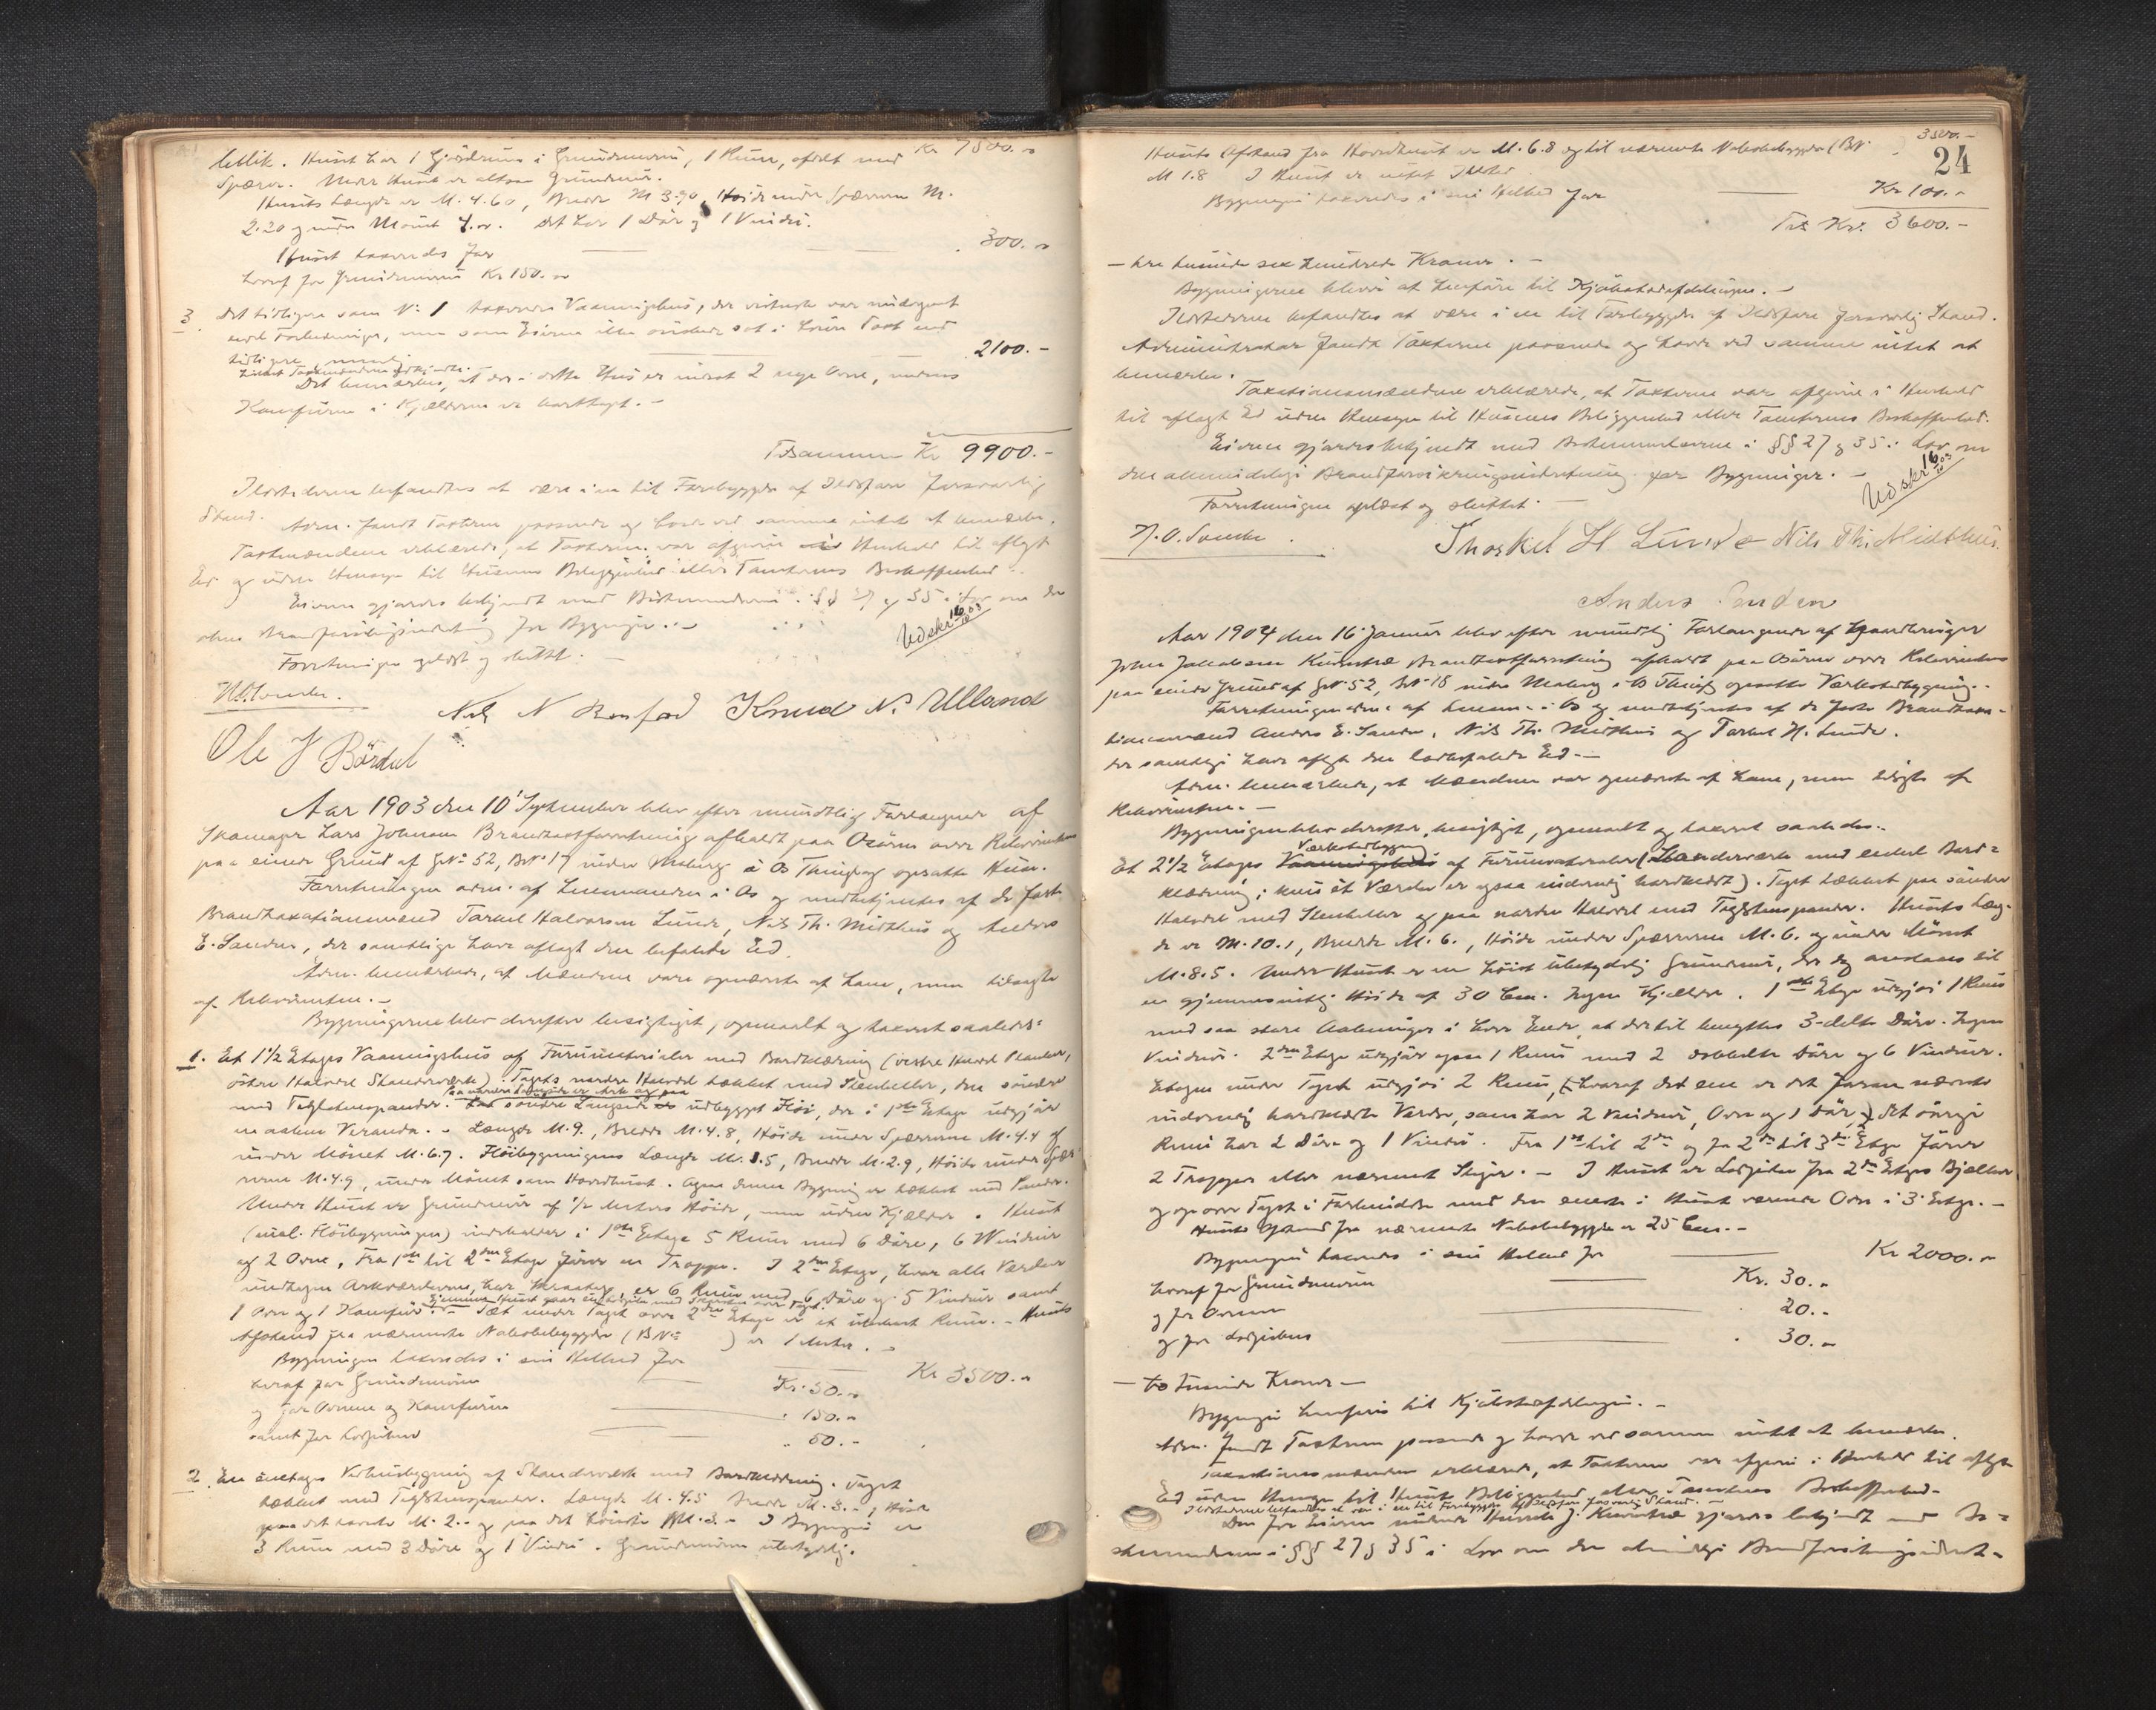 Kr 7500.-
Huset har 1 i Grundmuren, 1 Rum, afdelt med
Spærre. Under Huset er altsaa Grundmur.
Husets Længde er M. 4.60, Bredde M 3.70, Høide under Spærren M.
2.20 og under Mønet 4.-. Det har 1 Dør og 1 Vindu.
Huset taxeredes for 300.-
hvoraf for Grundmuren Kr 150.-
3. Det tidligere som No 1 taxerede Vaaningshus, der var undergaaet
endel Forbedringer, men som Eieren ikke ønskede sat i høiere Taxt end
tidligere, nemlig 2100.-
hvilket Taxtmændene
Det bemærkes, at der i dette Hus er indsat 2 nye Ovne, medens
Komfuren i Kjælderen er borttagt. -
Tilsammen Kr 9900.-
Ildstederne befandtes at være i en til Forebyggelse af Ildsfare forsvarlig
Stand.
Adm. fandt Taxterne passende og havde ved samme intet at bemærke.
Taxtmændene erklærede, at Taxterne var afgivne i Henhold til aflagt
Ed og uden Hensyn til Husenes Beliggenhed eller Tomternes Beskaffenhed.
Eieren gjordes bekjendt med Bestemmelserne i §§ 27 og 35 i Lov om den
alm. Brandforsikringsindretning for Bygninger. -
Udskr. 16/10 03
Forretningen oplæst og sluttet. -
Nils N Knud N. Ulland
Ole J Bördal
Aar 1903 den 10' September blev efter mundtlig Forlangende af
Skomager Lars Johnsen Brandtaxtforretning afholdt paa Osøren over Rekvirentens
paa eiende Grund af GNo 52, BNo 17 under Moberg i Os Thinglag opsatte Huse.
Forretningen adm. af Lensmanden i Os og medbetjentes af de faste
Brandtaxationsmænd Torkel Halvorsen Lunde, Nils Th. Midthus og Anders
E. Sanden, der samtlige have aflagt den befalede Ed.
Adm. bemærkede, at Mændene vare opnævnte af ham, men tilsagte
af Rekvirenten. -
Bygningerne blev derefter besigtiget, opmaalt og taxeret saaledes:
1. Et 1 1/2 Etages Vaaningshus af Furumaterialer med Bordklædning (vestre Halvdel Planker,
østre Halvdel Standerværk). Tagets nordre Halvdel tækket med Stenheller, den søndre
med Teglstenspander. Paa søndre Langside er udbygget Fløi, der i 1ste Etage udgjør
en aaben Veranda. - Længde M. 9., Bredde M. 4.8, Høide under Spærrene M. 4.4 og
under Mønet M. 6.7. Fløibygningens Længde M. 3.5, Bredde M. 2.9, Høide under Spær-
rene M. 4.9, under Mønet som Hovedhuset. Ogsaa denne Bygning er tækket med Pander.
Under Huset er Grundmur af 1/2 Meters Høide, men uden Kjælder. Huset
(incl. Fløibygningen) indeholder i 1ste Etage 5 Rum med 6 Døre, 6 Vinduer
og 2 Ovne. Fra 1ste til 2den Etage fører en Trappe. I 2den Etage, hvor alle Værelser
undtagen Arkværelserne, har Skraatag, er 6 Rum med 6 Døre og 5 Vinduer samt
1 Ovn og 1 Komfur. - Tæt under Taget over 2den Etage er et ubekvemt Rum. - Husets
Afstand fra nærmeste Nabobebyggelse (BNo ) er 1 Meter. -
Bygningen taxeredes i sin Helhed for Kr 3500.-
hvoraf for Grundmuren Kr. 50.-
og for Ovnene og Komfuren 150.-
samt for Lodpiben 50.-
2. En énetages Udhusbygning af Standerværk med Bordklædning. Taget
tækket med Teglstenspander. Længde M. 4.5 Bredde M. 3.-, Høide
paa det laveste M. 2.- og paa det høieste M. 3.- I Bygningen er
3 Rum med 3 Døre og 1 Vindu. Grundmuren ubetydelig.
3500.-
24
Husets Afstand fra Hovedhuset er M. 6.8 og til nærmeste Nabobebyggelse (BNo )
M 1.8 I Huset er intet Ildsted
Bygningen taxeredes i sin Helhed for Kr 100.-
Tils Kr. 3600.-
- tre tusinde sex hundrede Kroner. -
Bygningerne blive at henføre til Kjøbstadafdelingen. -
Ildstederne befandtes at være i en til Forebyggelse af Ildsfare forsvarlig Stand.
Administrator fandt Taxterne passende og havde ved samme intet at
bemærke.
Taxationsmændene erklærede, at Taxterne var afgivne i Henhold
til aflagt Ed uden Hensyn til Husenes Beliggenhed eller Tomternes Beskaffenhed.
Eieren gjordes bekjendt med Bestemmelserne i §§ 27 og 35 i Lov om
den almindelige Brandforsikringsindretning for Bygninger. -
Udskr. 16/10 03
Forretningen oplæst og sluttet. -
Thorkel H Lunde Nils Th. Midthus.
Anders Sanden
Aar 1904 den 16 Januar blev efter mundtlig Forlangende af Handlende
John Jakobsen Kuventræ Brandtaxtforretning afholdt paa Osøren over Rekvirentens
paa eiende Grund af GNo 52, BNo 18 under Moberg i Os Thinglag opsatte Værkstedbygning.
Forretningen adm. af Lensm. i Os og medbetjentes af de faste Brandtaxa-
tionsmænd Anders E. Sanden, Nils Th. Midthus og Torkel H. Lunde.
der samtlige have aflagt den lovbefalede Ed. -
Adm. bemærkede, at Mændene var opnævnte af ham, men tilsagte af
Rekvirenten. -
Bygningen blev derefter besigtiget, opmaalt og taxeret saaledes.
Værkstedbygning
Et 2 1/2 Etages Vaaningshus af Furumaterialer (Standerværk med enkel Bord-
klædning; kun ét Værelse er ogsaa indvendig bordklædt). Taget tækket paa søndre
Halvdel med Stenheller og paa nordre Halvdel med Teglstenspander. Husets Læng-
de er M. 10.1, Bredde M. 6., Høide under Spærrene M. 6. og under Mønet
M. 8.5. Under Huset er en høist ubetydelig Grundmur, der dog ansættes til
en gjennemsnitlig Høide af 30 Cm. Ingen Kjælder. 1ste Etage udgjør 1 Rum
med saa store Aabninger i hver Ende, at dertil benyttes 3-delte Døre. Ingen
Vinduer. 2den Etage udgjør ogsaa 1 Rum med 2 dobbelte Døre og 6 Vinduer.
Etagen under Taget udgjør 2 Rum, (hvoraf det ene er det foran nævnte
indvendig bordklædte Værelse, som har 2 Vinduer, Ovn og 1 Dør,) det øvrige
Rum har 2 Døre og 1 Vindu. Fra 1ste til 2den og fra 2den til 3die Etage fører
2 Trapper eller nærmest Stiger. - I Huset er Lodpibe fra 2den Etages Bjælker
og op over Taget i Forbindelse med den eneste i Huset værende Ovn i 3' Etage. -
Husets Afstand fra nærmeste Nabobebyggelse er 25 Cm. -
Bygningen taxeredes i sin Helhed for Kr 2000.-
hvoraf for Grundmuren Kr. 30.-
og for Ovnen 20.-
og for Lodpiben 30.-
- to tusinde Kroner -
Bygningen henføres til Kjøbstadafdelingen. -
Adm. fandt Taxterne passende og havde ved samme intet at bemærke.
Taxationsmændene erklærede, at Taxterne var afgivne i Henhold til aflagt
Ed uden Hensyn til Husets Beliggenhed eller Tomtens Beskaffenhed.
Ildstederne befandtes at være i en til Forebyggelse af Ildsfare forsvarlig Stand. -
Den for Eieren mødende J. Kuventræ gjordes bekjendt med Be-
stemmelserne i §§ 27 og 35 i Lov om den almindelige Brandforsikringsindret-